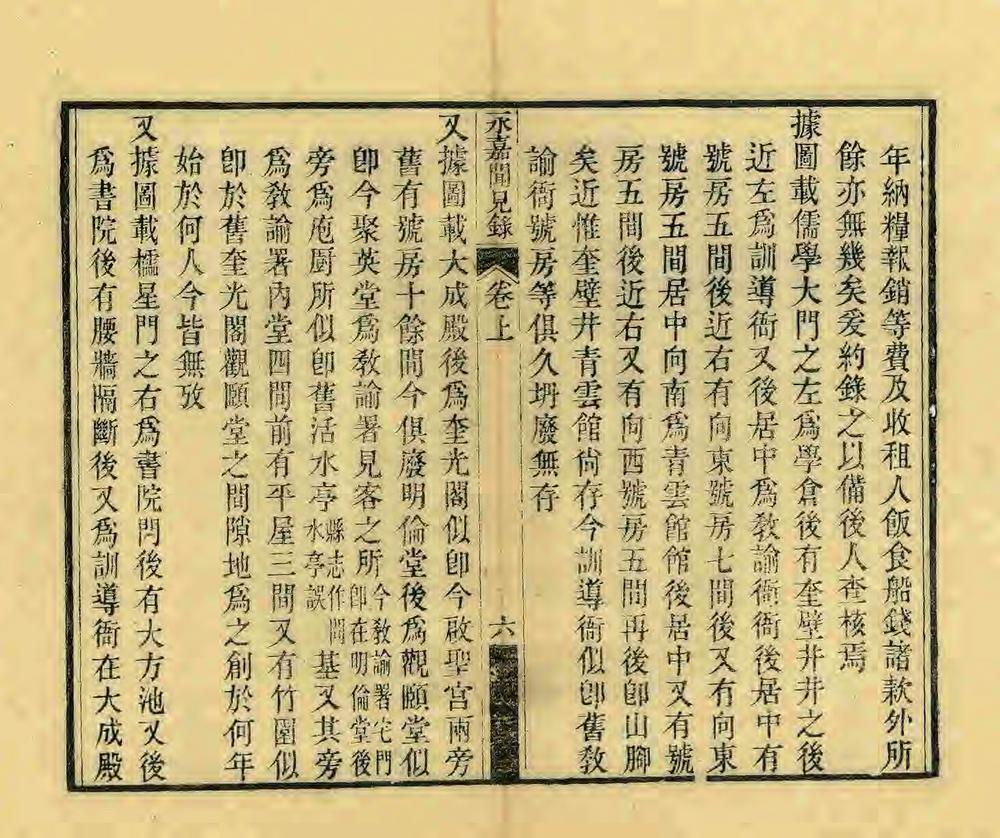 年納糧報銷等費及收租人飯食船錢諸款外所
餘亦無幾矣爰約錄之以備後人查核焉
據圖載儒學大門之左爲學倉後有奎壁井井之後
近左爲訓導衙又後居中爲敎諭衙衙後居中有
號房五間後近右有向東號房七間後又有向東
號房五間居中向南爲青雲館館後居中又有號
房五間後近右又有向西號房五間再後卽山腳
矣近惟奎壁井青雲館尙存今訓導衙似卽舊敎
諭衙號房等俱久坍廢無存
永嘉聞見錄 卷上 六
又據圖載大成殿後爲奎光閣似卽今啟聖宫兩旁
舊有號房十餘間今俱廢明倫堂後爲觀頤堂似
卽今聚英堂爲敎諭署見客之所今敎諭署宅門卽在明倫堂後
旁爲庖厨所似卽舊活水亭縣志作間水亭誤基又其旁
爲敎諭署內堂四間前有平屋三間又有竹園似
卽於舊奎光閣觀頤堂之間隙地爲之創於何年
始於何人今皆無攷
又據圖載櫺星門之右爲書院門後有大方池又後
爲書院後有腰牆隔斷後又爲訓導衙在大成殿